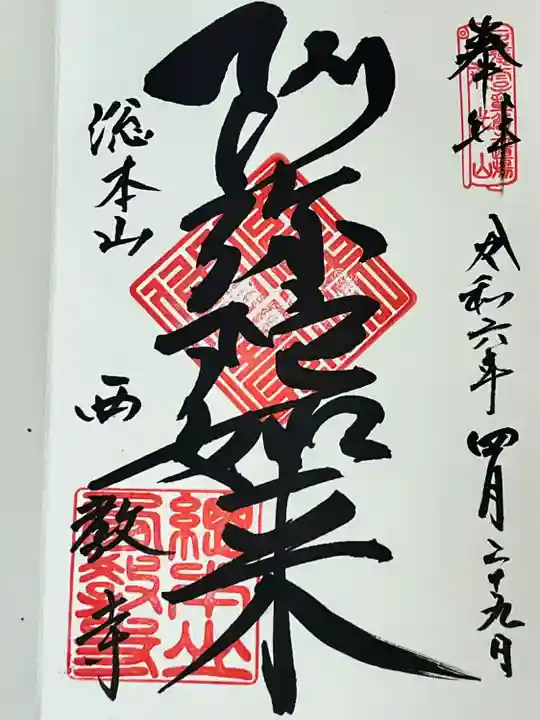 奉拝
令和六年四月二十九日
阿弥陀如来
総本山
西教寺